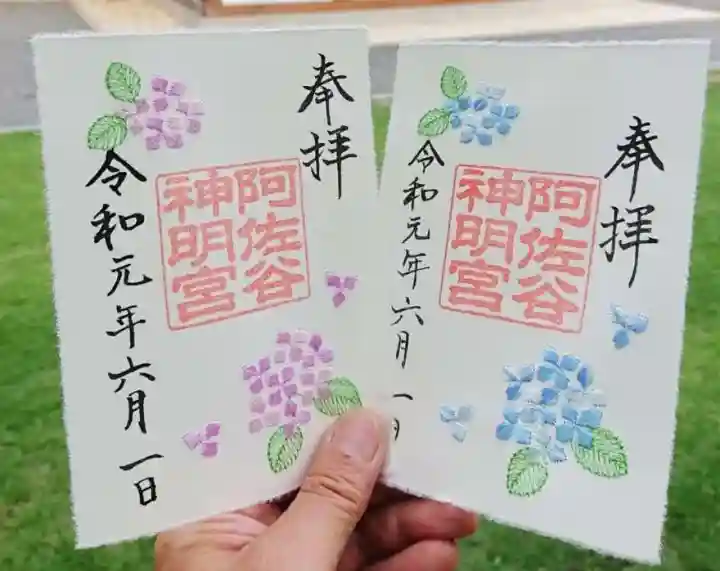 奉拝
阿佐谷
神明宮
令和元年六月一日
奉拝
阿佐谷
神明宮
令和元年六月一日